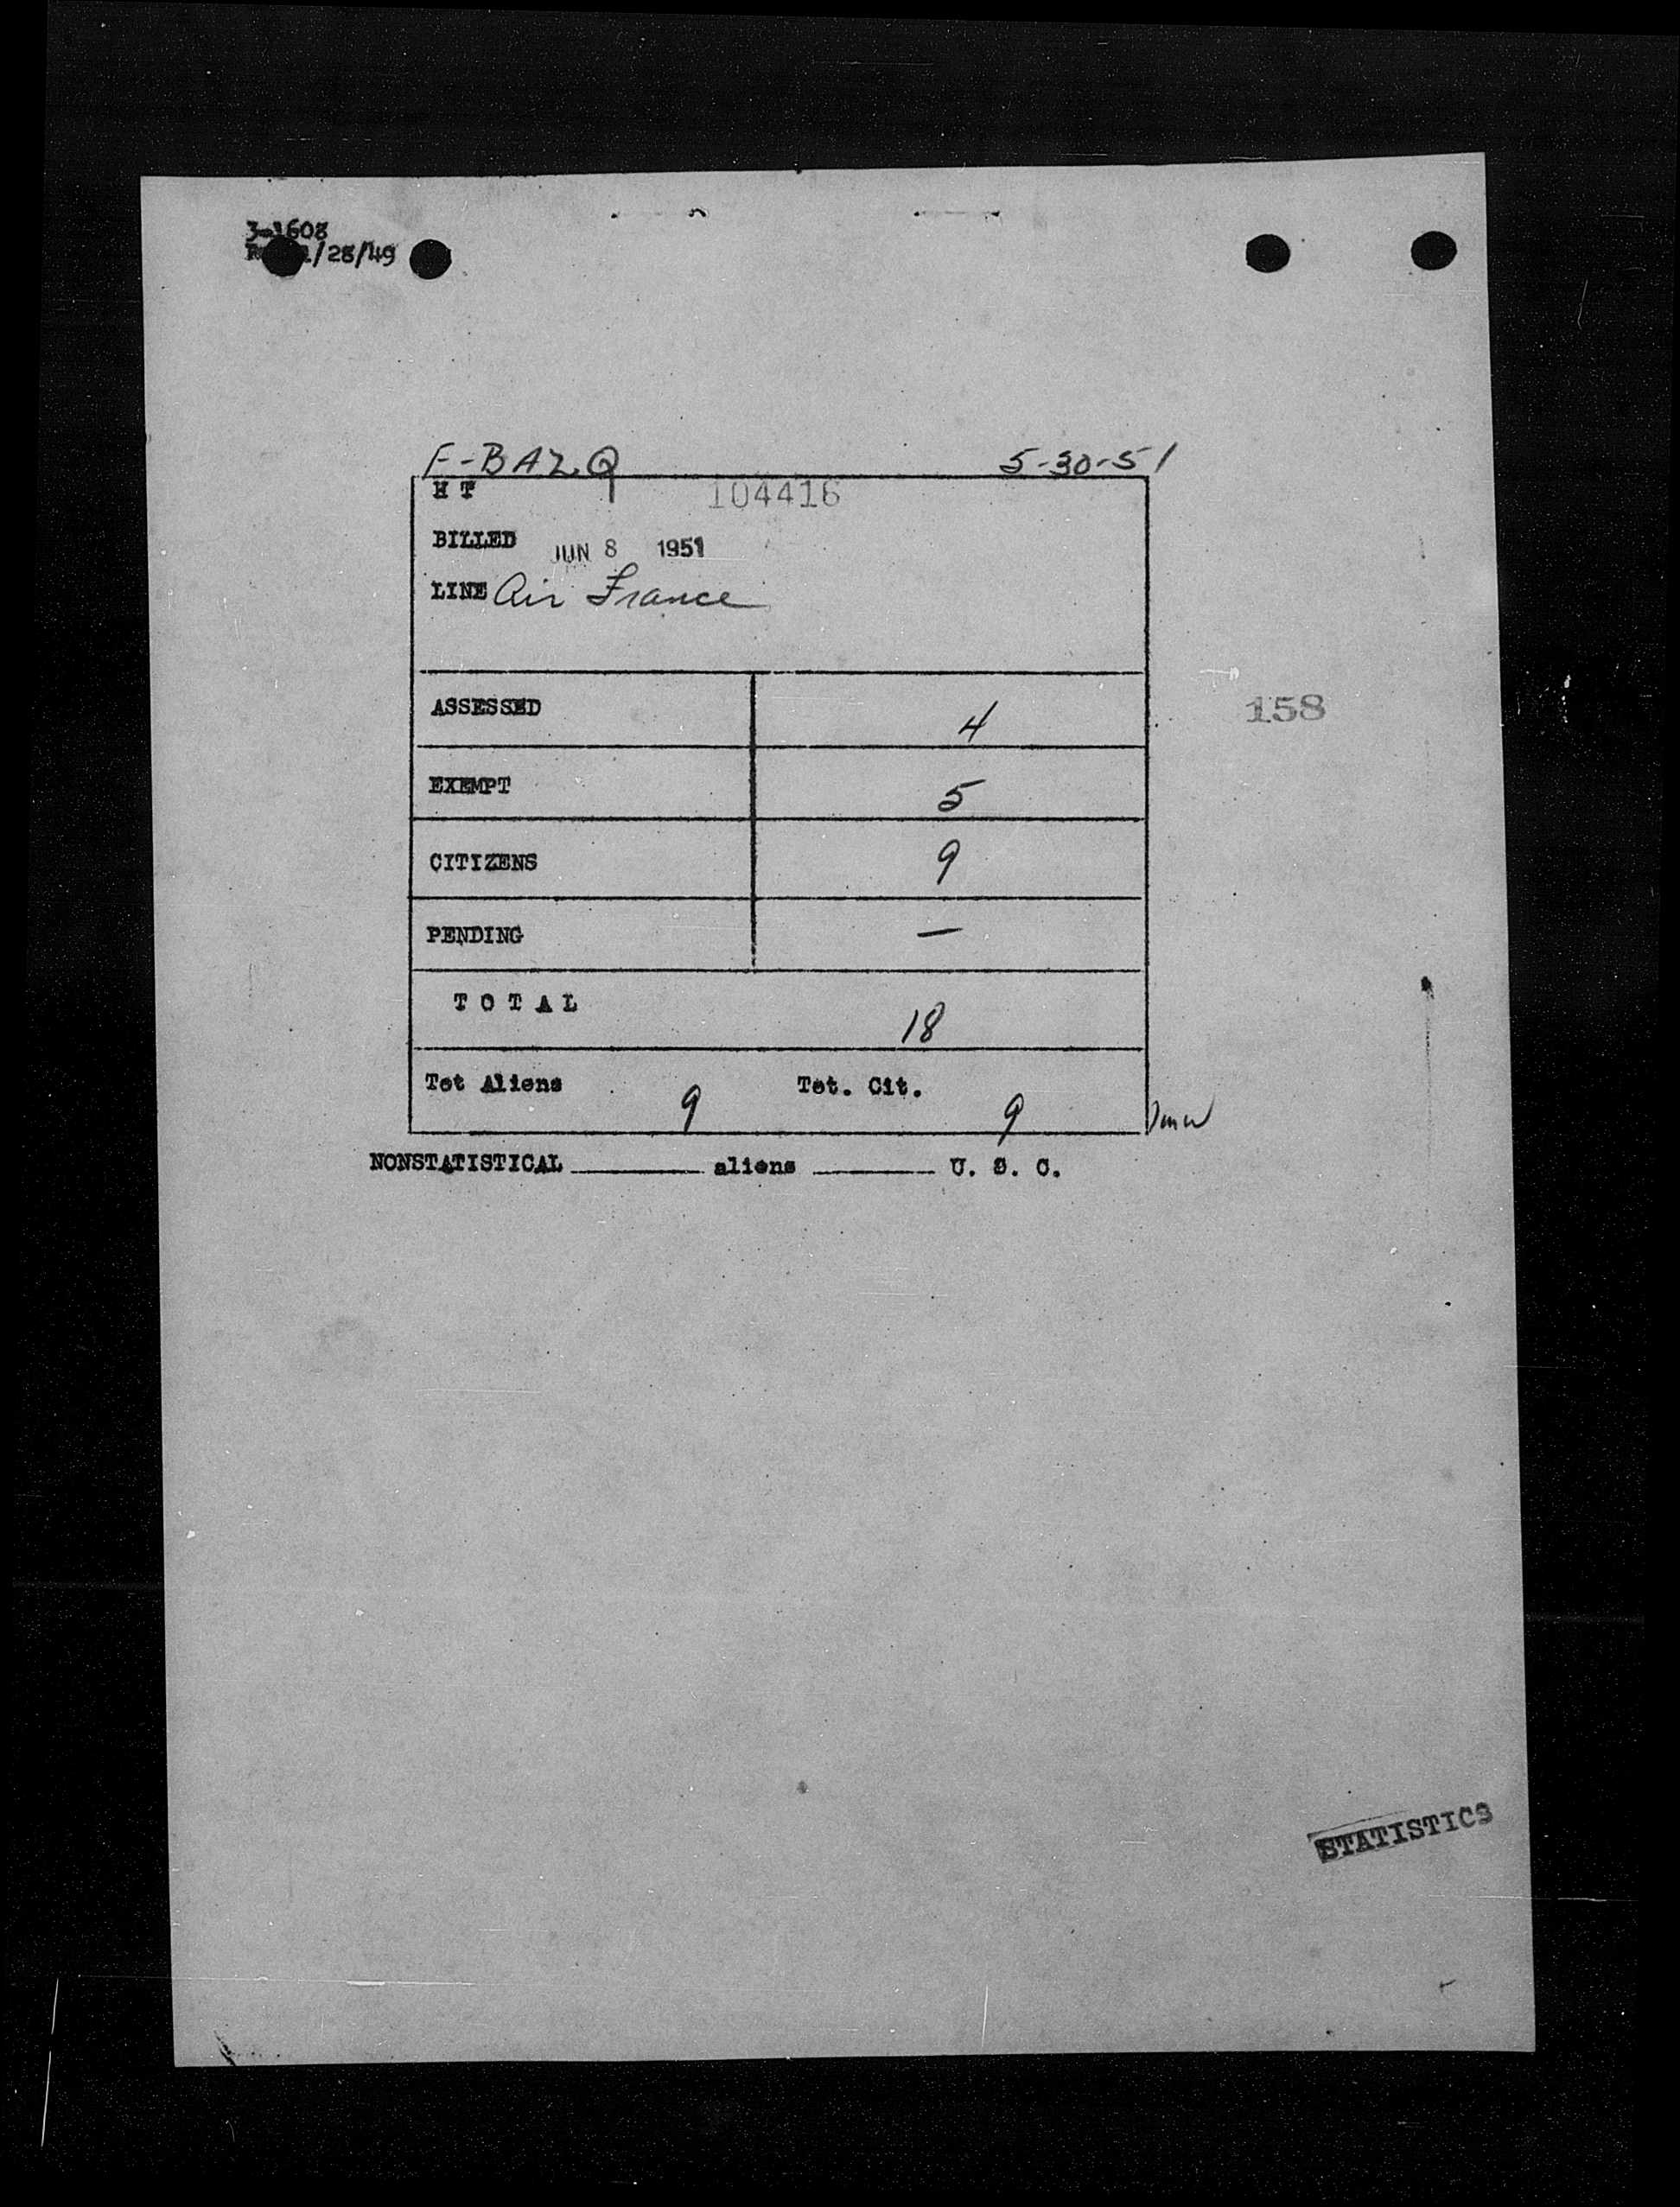 3-1608
1/28/49
F-BAZQ 5-30-51
H T 104416
BILLED JUN 8 1951
LINE Air France
ASSESSED 4
158
EXEMPT 5
CITIZENS 9
PENDING —
TOTAL 18
Tot Aliens 9 Tot. Cit. 9
NONSTATISTICAL ______ aliens ______ U. S. C.
STATISTICS